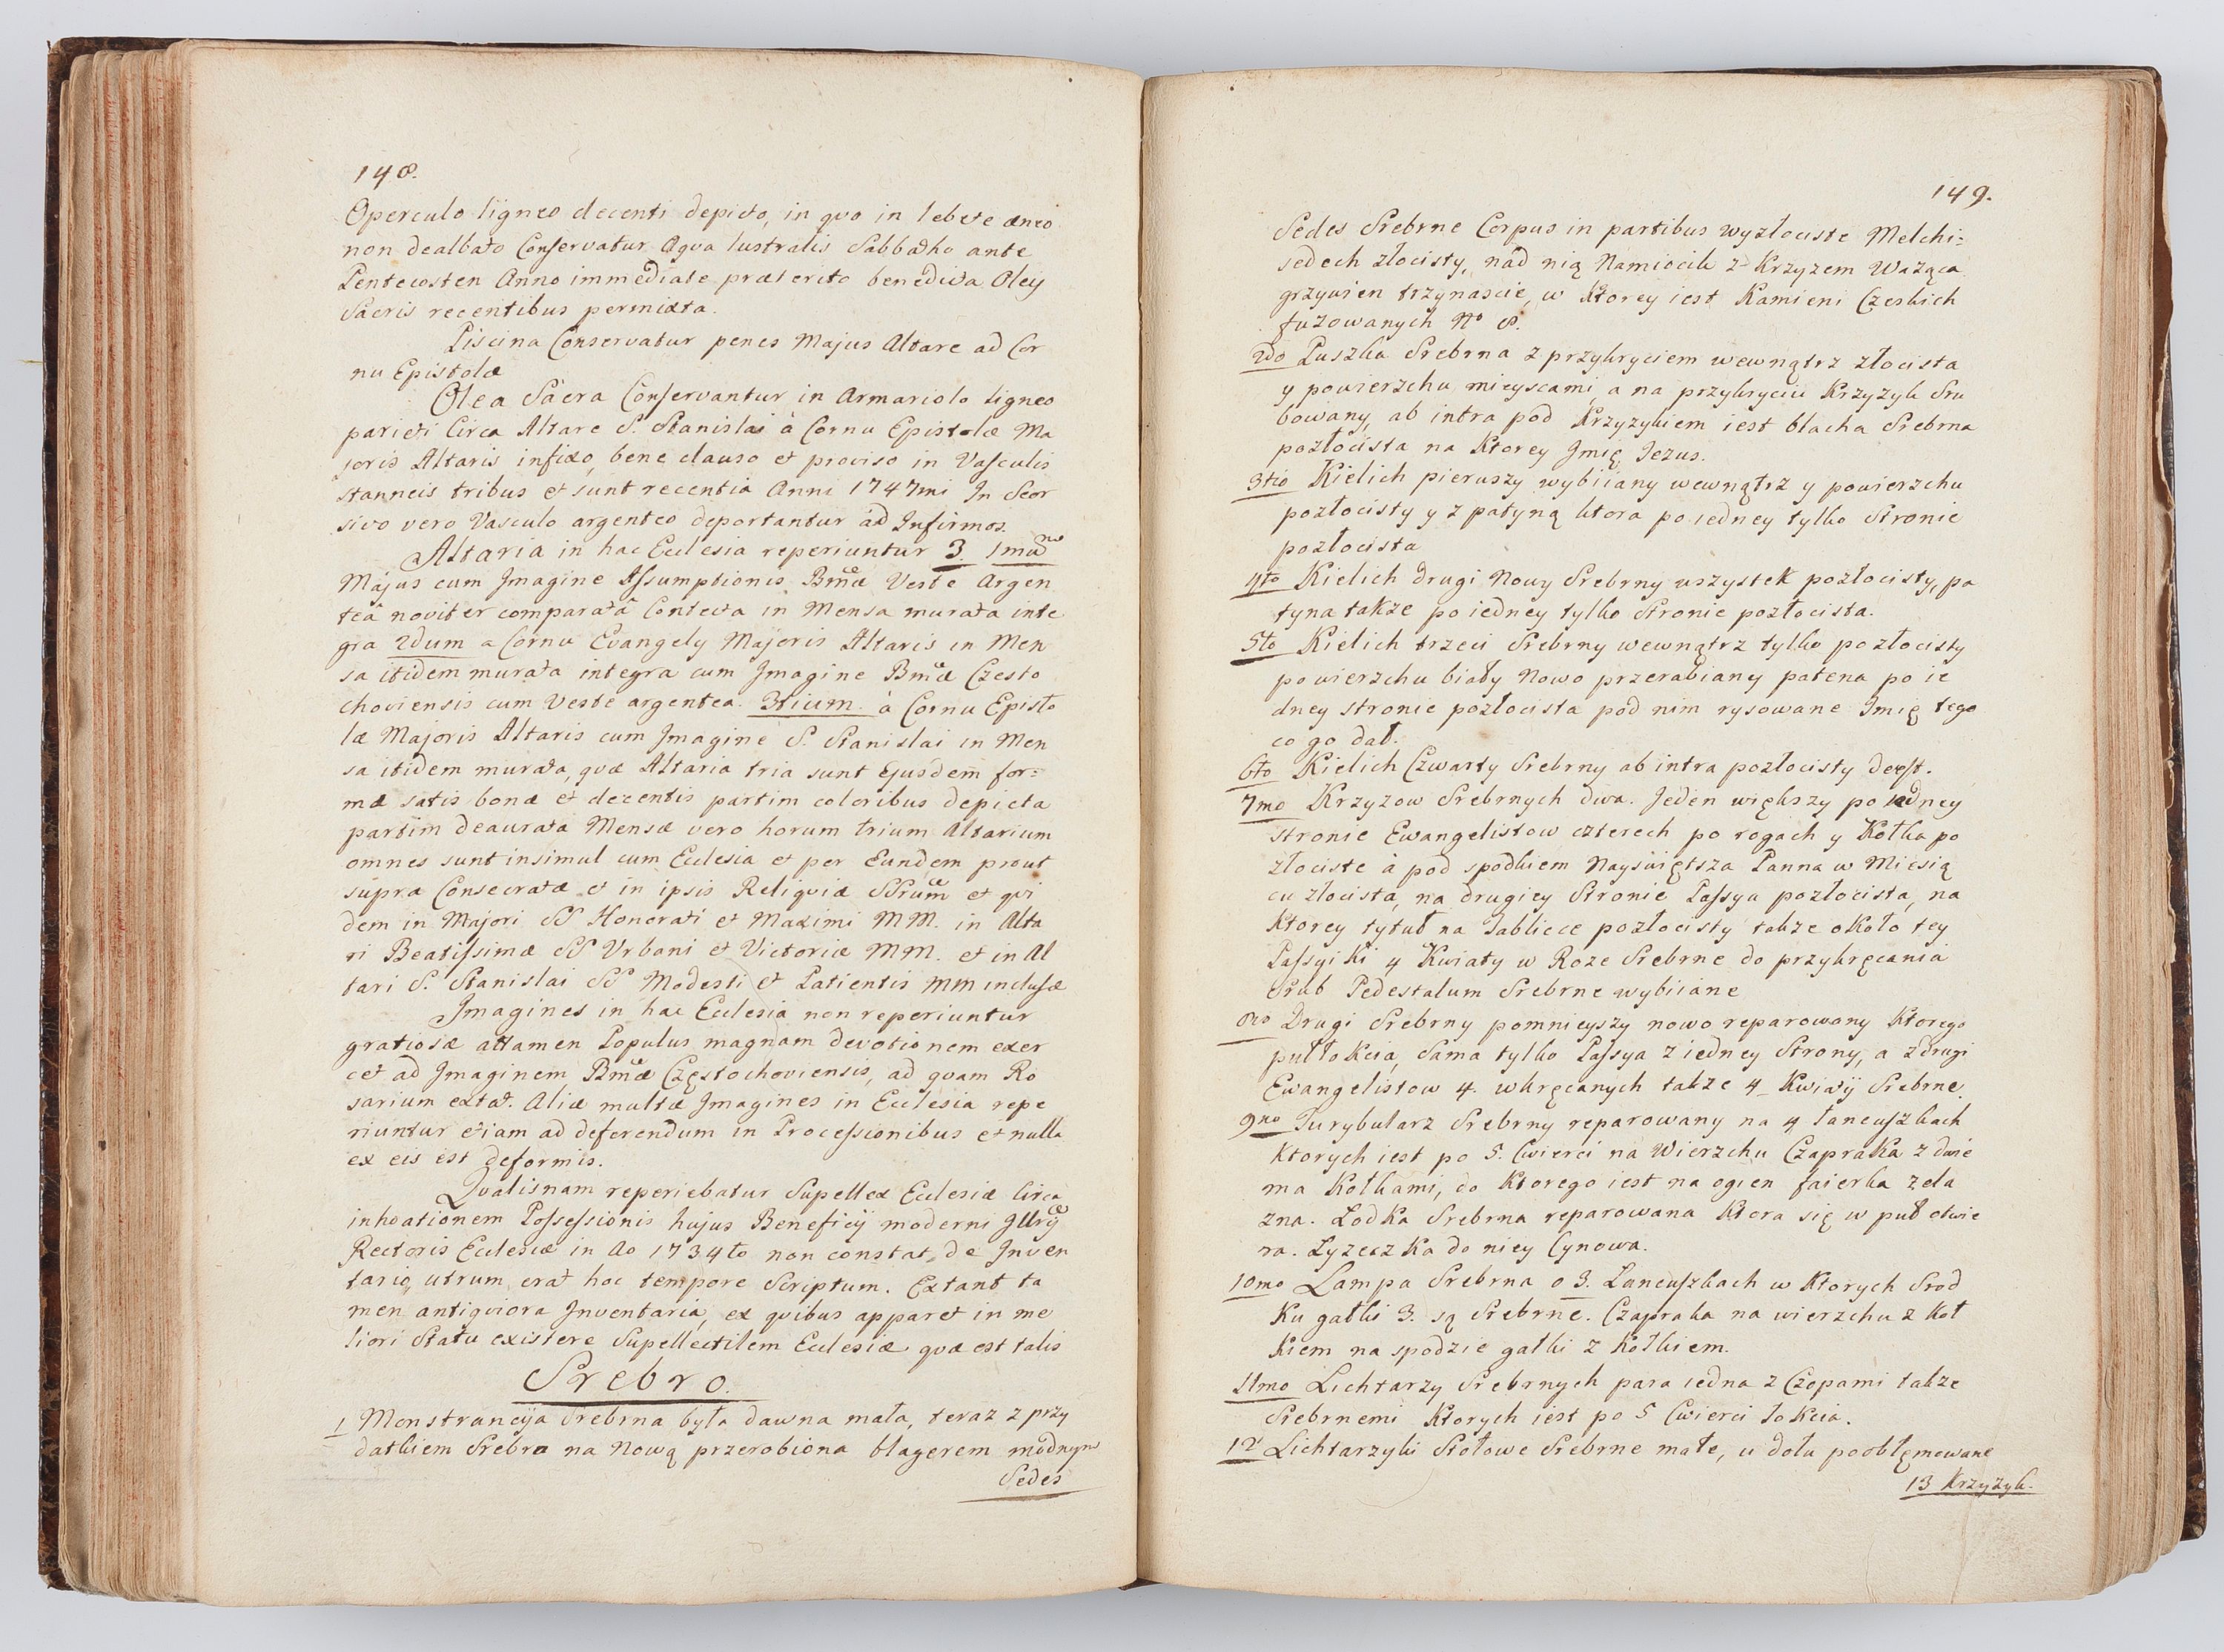 148.
Operculo ligneo decenti depicto, in qvo in lebete æneo
non dealbato Conservatur Aqva lustralis Sabbatho ante
Pentecosten Anno immediate præterito benedicta Oley
Sacris recentibus permixta.
Piscina Conservatur penes Majus Altare ad Cor
nu Epistolæ
Olea Sacra Conservantur in Armariolo ligneo
parieti Circa Altare S. Stanislai à Cornu Epistolæ Ma
joris Altaris infixo, bene clauso et proviso in Vasculis
stanneis tribus et sunt recentia Anni 1747mi In Seor
sivo vero Vasculo argenteo deportantur ad Infirmos.
Altaria in hac Ecclesia reperiuntur 3. 1mum
Majus cum Imagine Assumptionis Bmæ Veste Argen
teâ noviter comparatâ Contecta in Mensa murata inte
gra 2dum a Cornu Evangely Majoris Altaris in Men
sa itidem murata integra cum Imagine Bmæ Czesto
choviensis cum Veste argentea. 3tium. à Cornu Episto
læ Majoris Altaris cum Imagine S. Stanislai in Men
sa itidem murata, qvæ Altaria tria sunt Ejusdem for=
mæ satis bonæ et decentis partim coloribus depicta
partim deaurata Mensæ vero horum trium Altarium
omnes sunt insimul cum Ecclesia et per Eundem prout
supra Consecratæ et in ipsis Reliqviæ SSrum et qvi
dem in Majori SS Honorati et Maximi MM. in Alta
ri Beatissimæ SS Urbani et Victoriæ MM. et in Al
tari S. Stanislai SS Modesti et Patientis MM inclusæ
Imagines in hac Ecclesia non reperiuntur
gratiosæ attamen Populus magnam devotionem exer
cet ad Imaginem Bmæ Częstochoviensis, ad qvam Ro
sarium extat. Aliæ multæ Imagines in Ecclesia repe
riuntur etiam ad deferendum in Processionibus et nulla
ex eis est deformis.
Qvalisnam reperiebatur Supellex Ecclesiæ Circa
inhoationem Possessionis hujus Beneficij moderni Illris
Rectoris Ecclesiæ in Ao 1734to non constat, de Inven
tario, utrum erat hoc tempore Scriptum. Extant ta
men antiqviora Inventaria, ex qvibus apparet in me
liori Statu existere Supellectilem Ecclesiæ qvæ est talis
Srebro.
1 Monstrancyja Srebrna była dawna mała, teraz z przy
datkiem Srebra na Nową przerobiona blagerem modnym
Sedes
149.
Sedes Srebrne Corpus in partibus wyzłociste Melchi=
sedech złocisty, nad nią Namiocik z Krzyzem Ważąca
grzywien trzynascie, w Ktorey iest Kamieni Czeskich
fuzowanych No 8.
2do Puszka Srebrna z przykryciem wewnątrz złocista
y powierzchu mieyscami, a na przykryciu Krzyzyk Sru
bowany, ab intra pod Krzyzykiem iest blacha Srebrna
pozłocista na Ktorey Imię Jezus.
3tio Kielich pierwszy wybiiany wewnątrz y powierzchu
pozłocisty y z patyną ktora po iedney tylko Stronie
pozłocista
4to Kielich drugi Nowy Srebrny wszystek pozłocisty, pa
tyna takze po iedney tylko Stronie pozłocista.
5to Kielich trzeci Srebrny wewnątrz tylko pozłocisty
powierzchu biały Nowo przerabiany patena po ie
dney stronie pozłocista pod nim rysowane Imię tego
co go dał.
6to Kielich Czwarty Srebrny ab intra pozłocisty deest.
7mo Krzyzow Srebrnych dwa. Jeden większy po iedney
stronie Ewangelistow czterech po rogach y Kołka po
złociste à pod spodkiem Nayświętsza Panna w Miesią
cu złocista, na drugiey Stronie Passya pozłocista, na
Ktorey tytuł na Tablicce pozłocisty takze około tey
Passyiki 4 Kwiaty w Roze Srebrne do przykręcania
Srub Pedestalum Srebrne wybiiane
8vo Drugi Srebrny pomnieyszy nowo reparowany Ktorego
pułłokcia, Sama tylko Passya z iedney Strony, a z drugi
Ewangelistow 4. wkręcanych takze 4 Kwiaty Srebrne.
9no Turybularz Srebrny reparowany na 4 łancuszkach
Ktorych iest po 5. Cwierci na Wierzchu Czapraka z dwie
ma Kołkami, do Ktorego iest na ogien faierka zela
zna. Łodka Srebrna reparowana Ktora się w puł otwie
ra. Lyzeczka do niey Cynowa.
10mo Lampa Srebrna o 3. Łancuszkach w Ktorych Srod
Ku gałki 3. są Srebrne. Czapraka na wierzchu z Koł
Kiem na spodzie gałki z Kołkiem.
11mo Lichtarzy Srebrnych para iedna z Czopami takze
Srebrnemi Ktorych iest po 5 Cwierci łokcia.
12 Lichtarzyki Stołowe Srebrne małe, u dołu poobłęmowane
13 Krzyzyk.